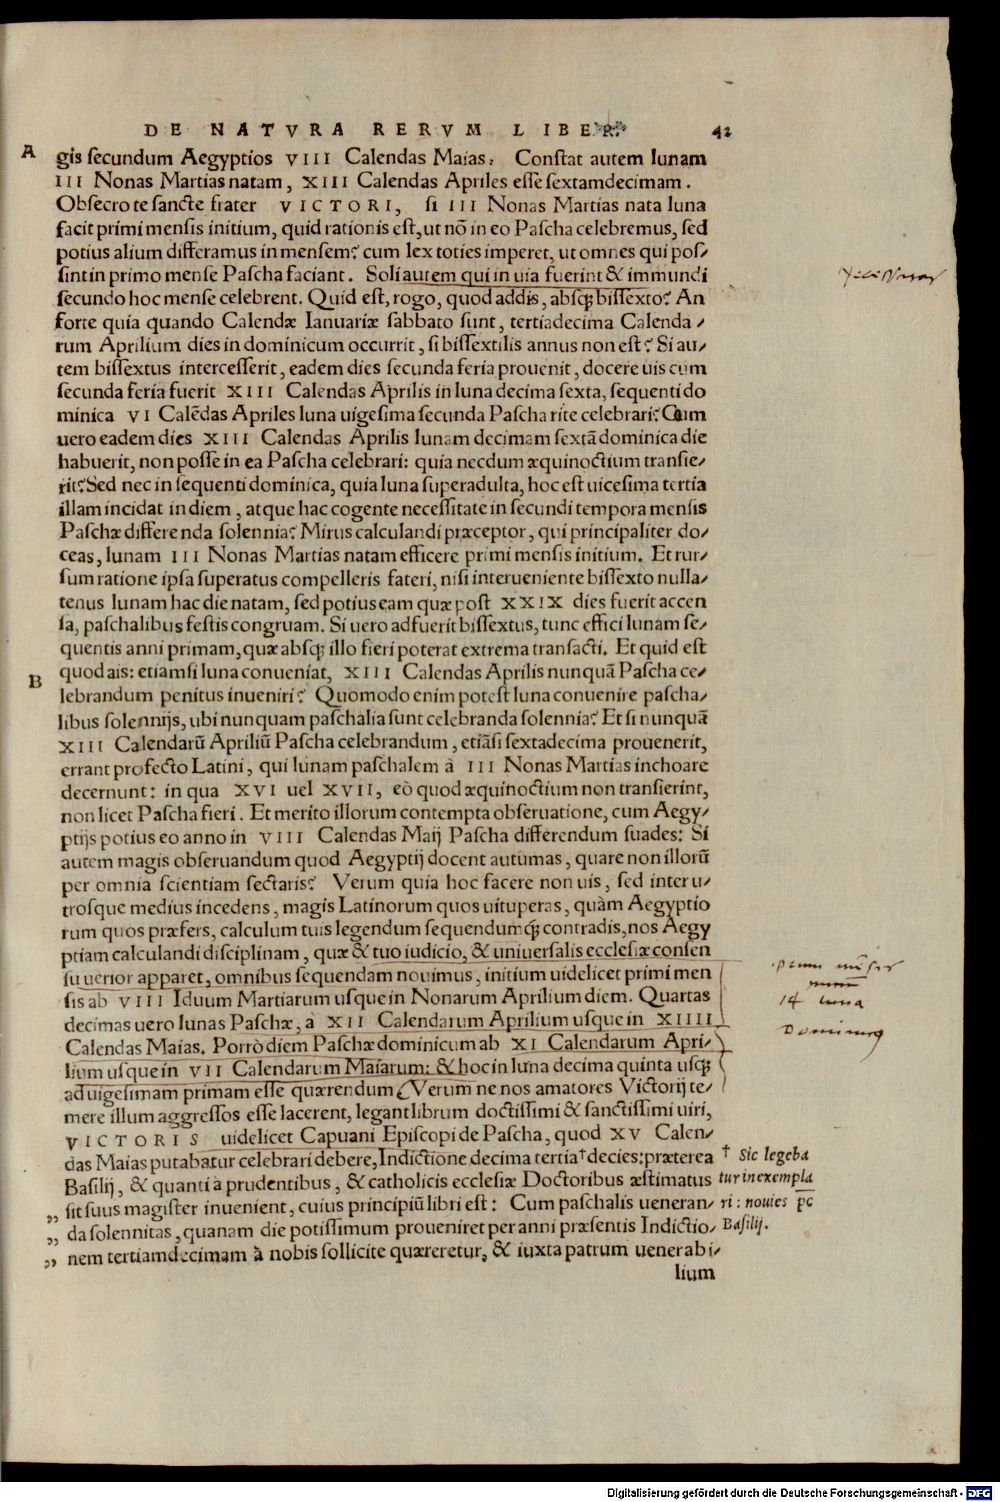 DE NATVRA RERVM LIBER. 42
A
gis secundum Aegyptios VIII Calendas Maias. Constat autem lunam
III Nonas Martias natam, XIII Calendas Apriles esse sextamdecimam.
Obsecro te sancte frater VICTORI, si III Nonas Martias nata luna
facit primi mensis initium, quid rationis est, ut nõ in eo Pascha celebremus, sed
potius alium differamus in mensem? cum lex toties imperet, ut omnes qui pos/
sint in primo mense Pascha faciant. Soli autem qui in uia fuerint & immundi
secundo hoc mense celebrent. Quid est, rogo, quod addis, absq; bissexto? An
forte quia quando Calendæ Ianuariæ sabbato sunt, tertiadecima Calenda/
rum Aprilium dies in dominicum occurrit, si bissextilis annus non est? Si au/
tem bissextus intercesserit, eadem dies secunda feria prouenit, docere uis cum
secunda feria fuerit XIII Calendas Aprilis in luna decima sexta, sequenti do
minica VI Calẽdas Apriles luna uigesima secunda Pascha rite celebrari? Cum
uero eadem dies XIII Calendas Aprilis lunam decimam sextã dominica die
habuerit, non posse in ea Pascha celebrari: quia necdum æquinoctium transie/
rit? Sed nec in sequenti dominica, quia luna superadulta, hoc est uicesima tertia
illam incidat in diem, atque hac cogente necessitate in secundi tempora mensis
Paschæ differenda solennia? Mirus calculandi præceptor, qui principaliter do/
ceas, lunam III Nonas Martias natam efficere primi mensis initium. Et rur/
sum ratione ipsa superatus compelleris fateri, nisi interueniente bissexto nulla/
tenus lunam hac die natam, sed potius eam quæ post XXIX dies fuerit accen
sa, paschalibus festis congruam. Si uero adfuerit bissextus, tunc effici lunam se/
quentis anni primam, quæ absq; illo fieri poterat extrema transacti. Et quid est
quod ais: etiamsi luna conueniat, XIII Calendas Aprilis nunquã Pascha ce/
B
lebrandum penitus inueniri? Quomodo enim potest luna conuenire pascha/
libus solennijs, ubi nunquam paschalia sunt celebranda solennia? Et si nunquã
XIII Calendarũ Apriliũ Pascha celebrandum, etiãsi sextadecima prouenerit,
errant profecto Latini, qui lunam paschalem à III Nonas Martias inchoare
decernunt: in qua XVI uel XVII, eò quod æquinoctium non transierint,
non licet Pascha fieri. Et merito illorum contempta obseruatione, cum Aegy/
ptijs potius eo anno in VIII Calendas Maij Pascha differendum suades: Si
autem magis obseruandum quod Aegyptij docent autumas, quare non illorũ
per omnia scientiam sectaris? Verum quia hoc facere non uis, sed inter u/
trosque medius incedens, magis Latinorum quos uituperas, quàm Aegyptio
rum quos præfers, calculum tuis legendum sequendumq; contradis, nos Aegy
ptiam calculandi disciplinam, quæ & tuo iudicio, & uniuersalis ecclesiæ consen
su uerior apparet, omnibus sequendam nouimus, initium uidelicet primi men
sis ab VIII Iduum Martiarum usque in Nonarum Aprilium diem. Quartas
14 luna
decimas uero lunas Paschæ, à XII Calendarum Aprilium usque in XIIII
Calendas Maias. Porrò diem Paschæ dominicum ab XI Calendarum Apri/
lium usque in VII Calendarum Maiarum: & hoc in luna decima quinta usq;
ad uigesimam primam esse quærendum. Verum ne nos amatores Victorij te/
mere illum aggressos esse lacerent, legant librum doctissimi & sanctissimi uiri,
VICTORIS uidelicet Capuani Episcopi de Pascha, quod XV Calen/
das Maias putabatur celebrari debere, Indictione decima tertia † decies: præterea
Basilij, & quanti à prudentibus, & catholicis ecclesiæ Doctoribus æstimatus
sit suus magister inuenient, cuius principiũ libri est: Cum paschalis ueneran/
„ da solennitas, quanam die potissimum proueniret per anni præsentis Indictio/
„ nem tertiamdecimam à nobis sollicite quæreretur, & iuxta patrum uenerabi/
lium
† Sic legeba
tur in exempla
ri: nouies pc
Basilij.
Digitalisierung gefördert durch die Deutsche Forschungsgemeinschaft - DFG